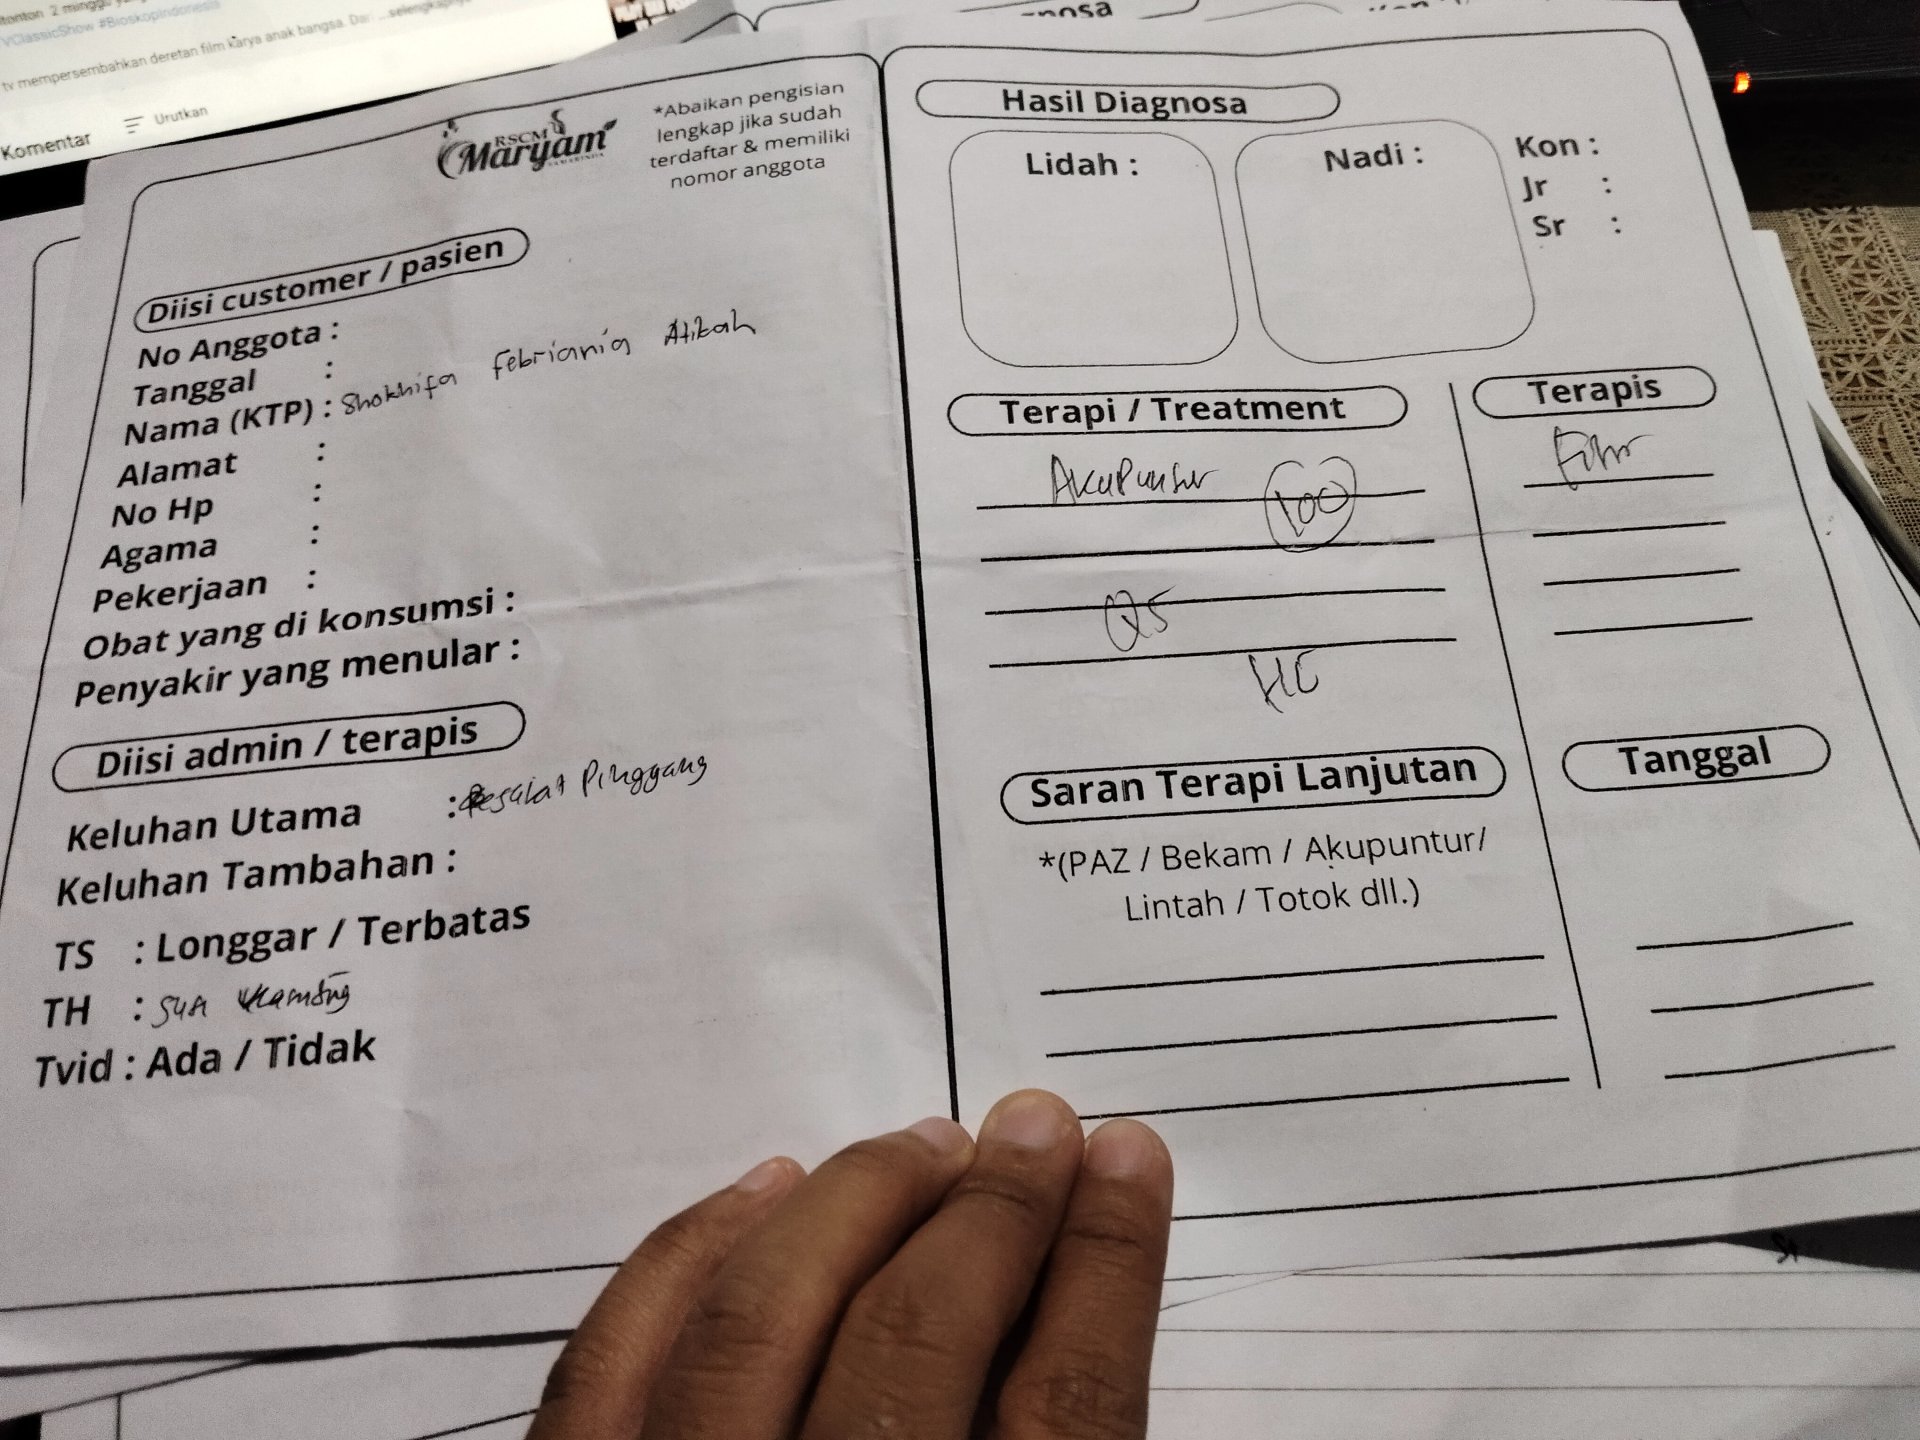 tonton 2 minggu
VClassicShow #BioskopIndonesia
tv mempersembahkan deretan film karya anak bangsa. Dar... selengkapnya
Komentar
Urutkan
RSCM
Maryam
SAMARINDA
*Abaikan pengisian
lengkap jika sudah
terdaftar & memiliki
nomor anggota
Diisi customer / pasien
No Anggota :
Tanggal :
Nama (KTP) : Shokhifa Febriania Atikah
Alamat :
No Hp :
Agama :
Pekerjaan :
Obat yang di konsumsi :
Penyakir yang menular :
Diisi admin / terapis
Keluhan Utama : Pinggang
Keluhan Tambahan :
TS : Longgar / Terbatas
TH :
Tvid : Ada / Tidak
Hasil Diagnosa
Lidah :
Nadi :
Kon :
Jr :
Sr :
Terapi / Treatment
Akupuntur 100
QS
HC
Terapis
Saran Terapi Lanjutan
*(PAZ / Bekam / Akupuntur/
Lintah / Totok dll.)
Tanggal